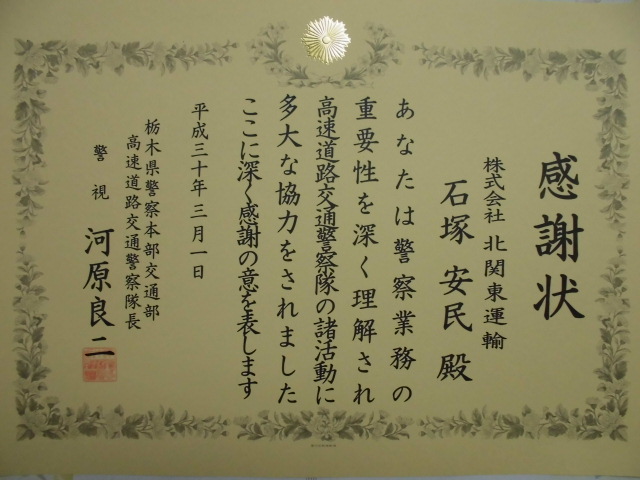 感謝状
株式会社 北関東運輸
石塚 安民 殿
あなたは警察業務の
重要性を深く理解され
高速道路交通警察隊の諸活動に
多大な協力をされました
ここに深く感謝の意を表します
平成三十年三月一日
栃木県警察本部交通部
高速道路交通警察隊長
警視 河原良二